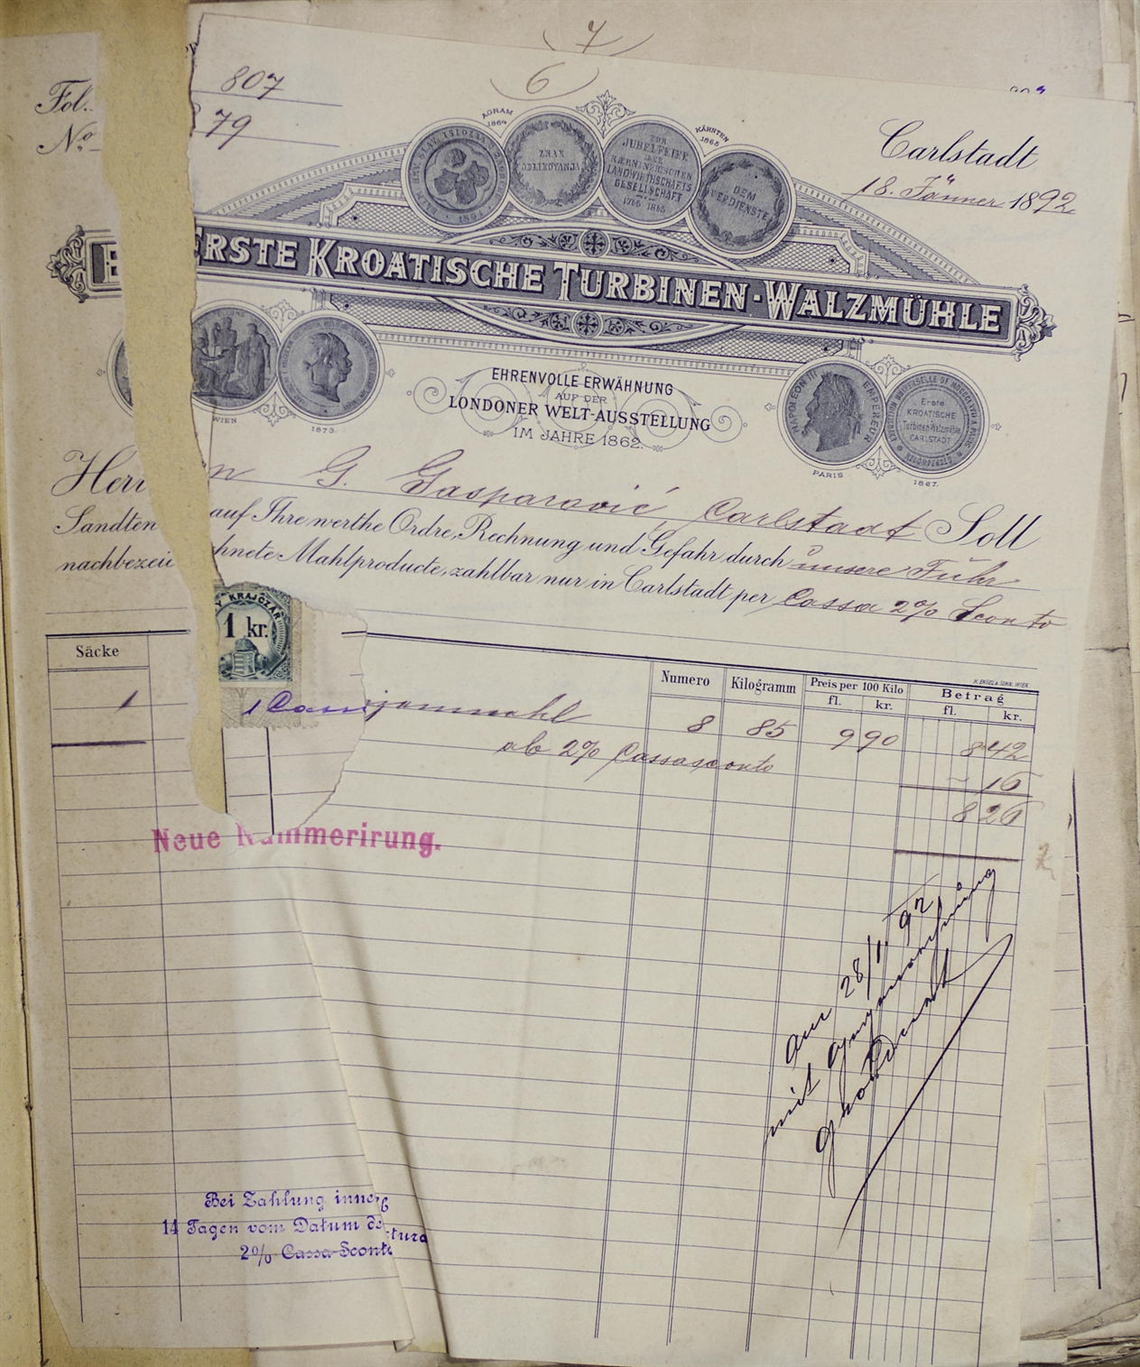 7
6
Fol. 807
No 79
Carlstadt
18. Jänner 1892
AGRAM 1864
KÄRNTEN 1865
ZNAK ODLIKOVANJA
ZUR JUBELFEIER DER KAERNTNERISCHEN LANDWIRTHSCHAFTS GESELLSCHAFT 1765 1865
DEM VERDIENSTE
ERSTE KROATISCHE TURBINEN-WALZMÜHLE
WIEN 1873.
EHRENVOLLE ERWÄHNUNG
AUF DER
LONDONER WELT-AUSSTELLUNG
IM JAHRE 1862.
NAPOLEON III EMPEREUR
Erste KROATISCHE Turbinen-Walzmühle CARLSTADT
PARIS 1867.
Herrn G. Gasparović Carlstadt Soll
Sandten auf Ihre werthe Ordre, Rechnung und Gefahr durch unsere Fuhr
nachbezeichnete Mahlproducte, zahlbar nur in Carlstadt per Cassa 2% Sconto
KRAJCZÁR
1 kr.
Säcke Numero Kilogramm Preis per 100 Kilo Betrag
fl. kr. fl. kr.
1 8 85 9 90 8 42
ab 2% Cassasconto - 16
8 26
Neue Nummerirung.
am 28/1 92
mit
Bei Zahlung inner
14 Tagen vom Datum de tura
2% Cassa-Sconto